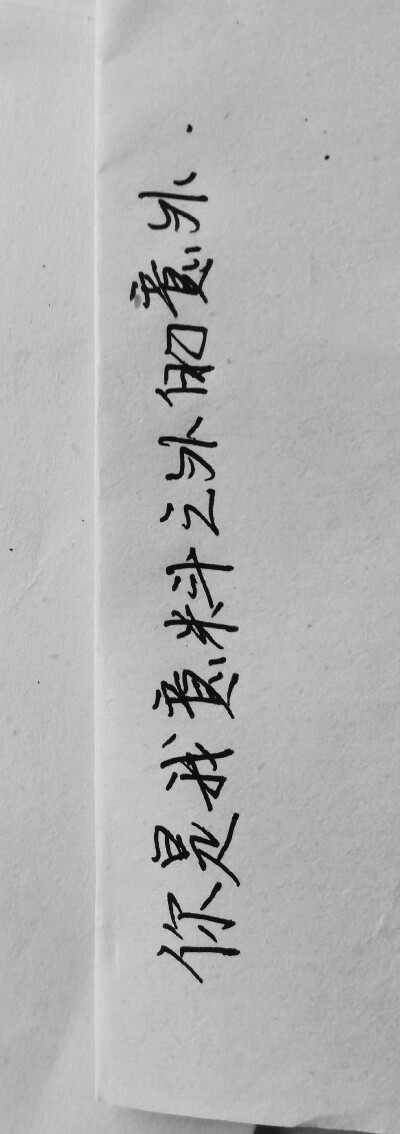 你是我意料之外的意外.